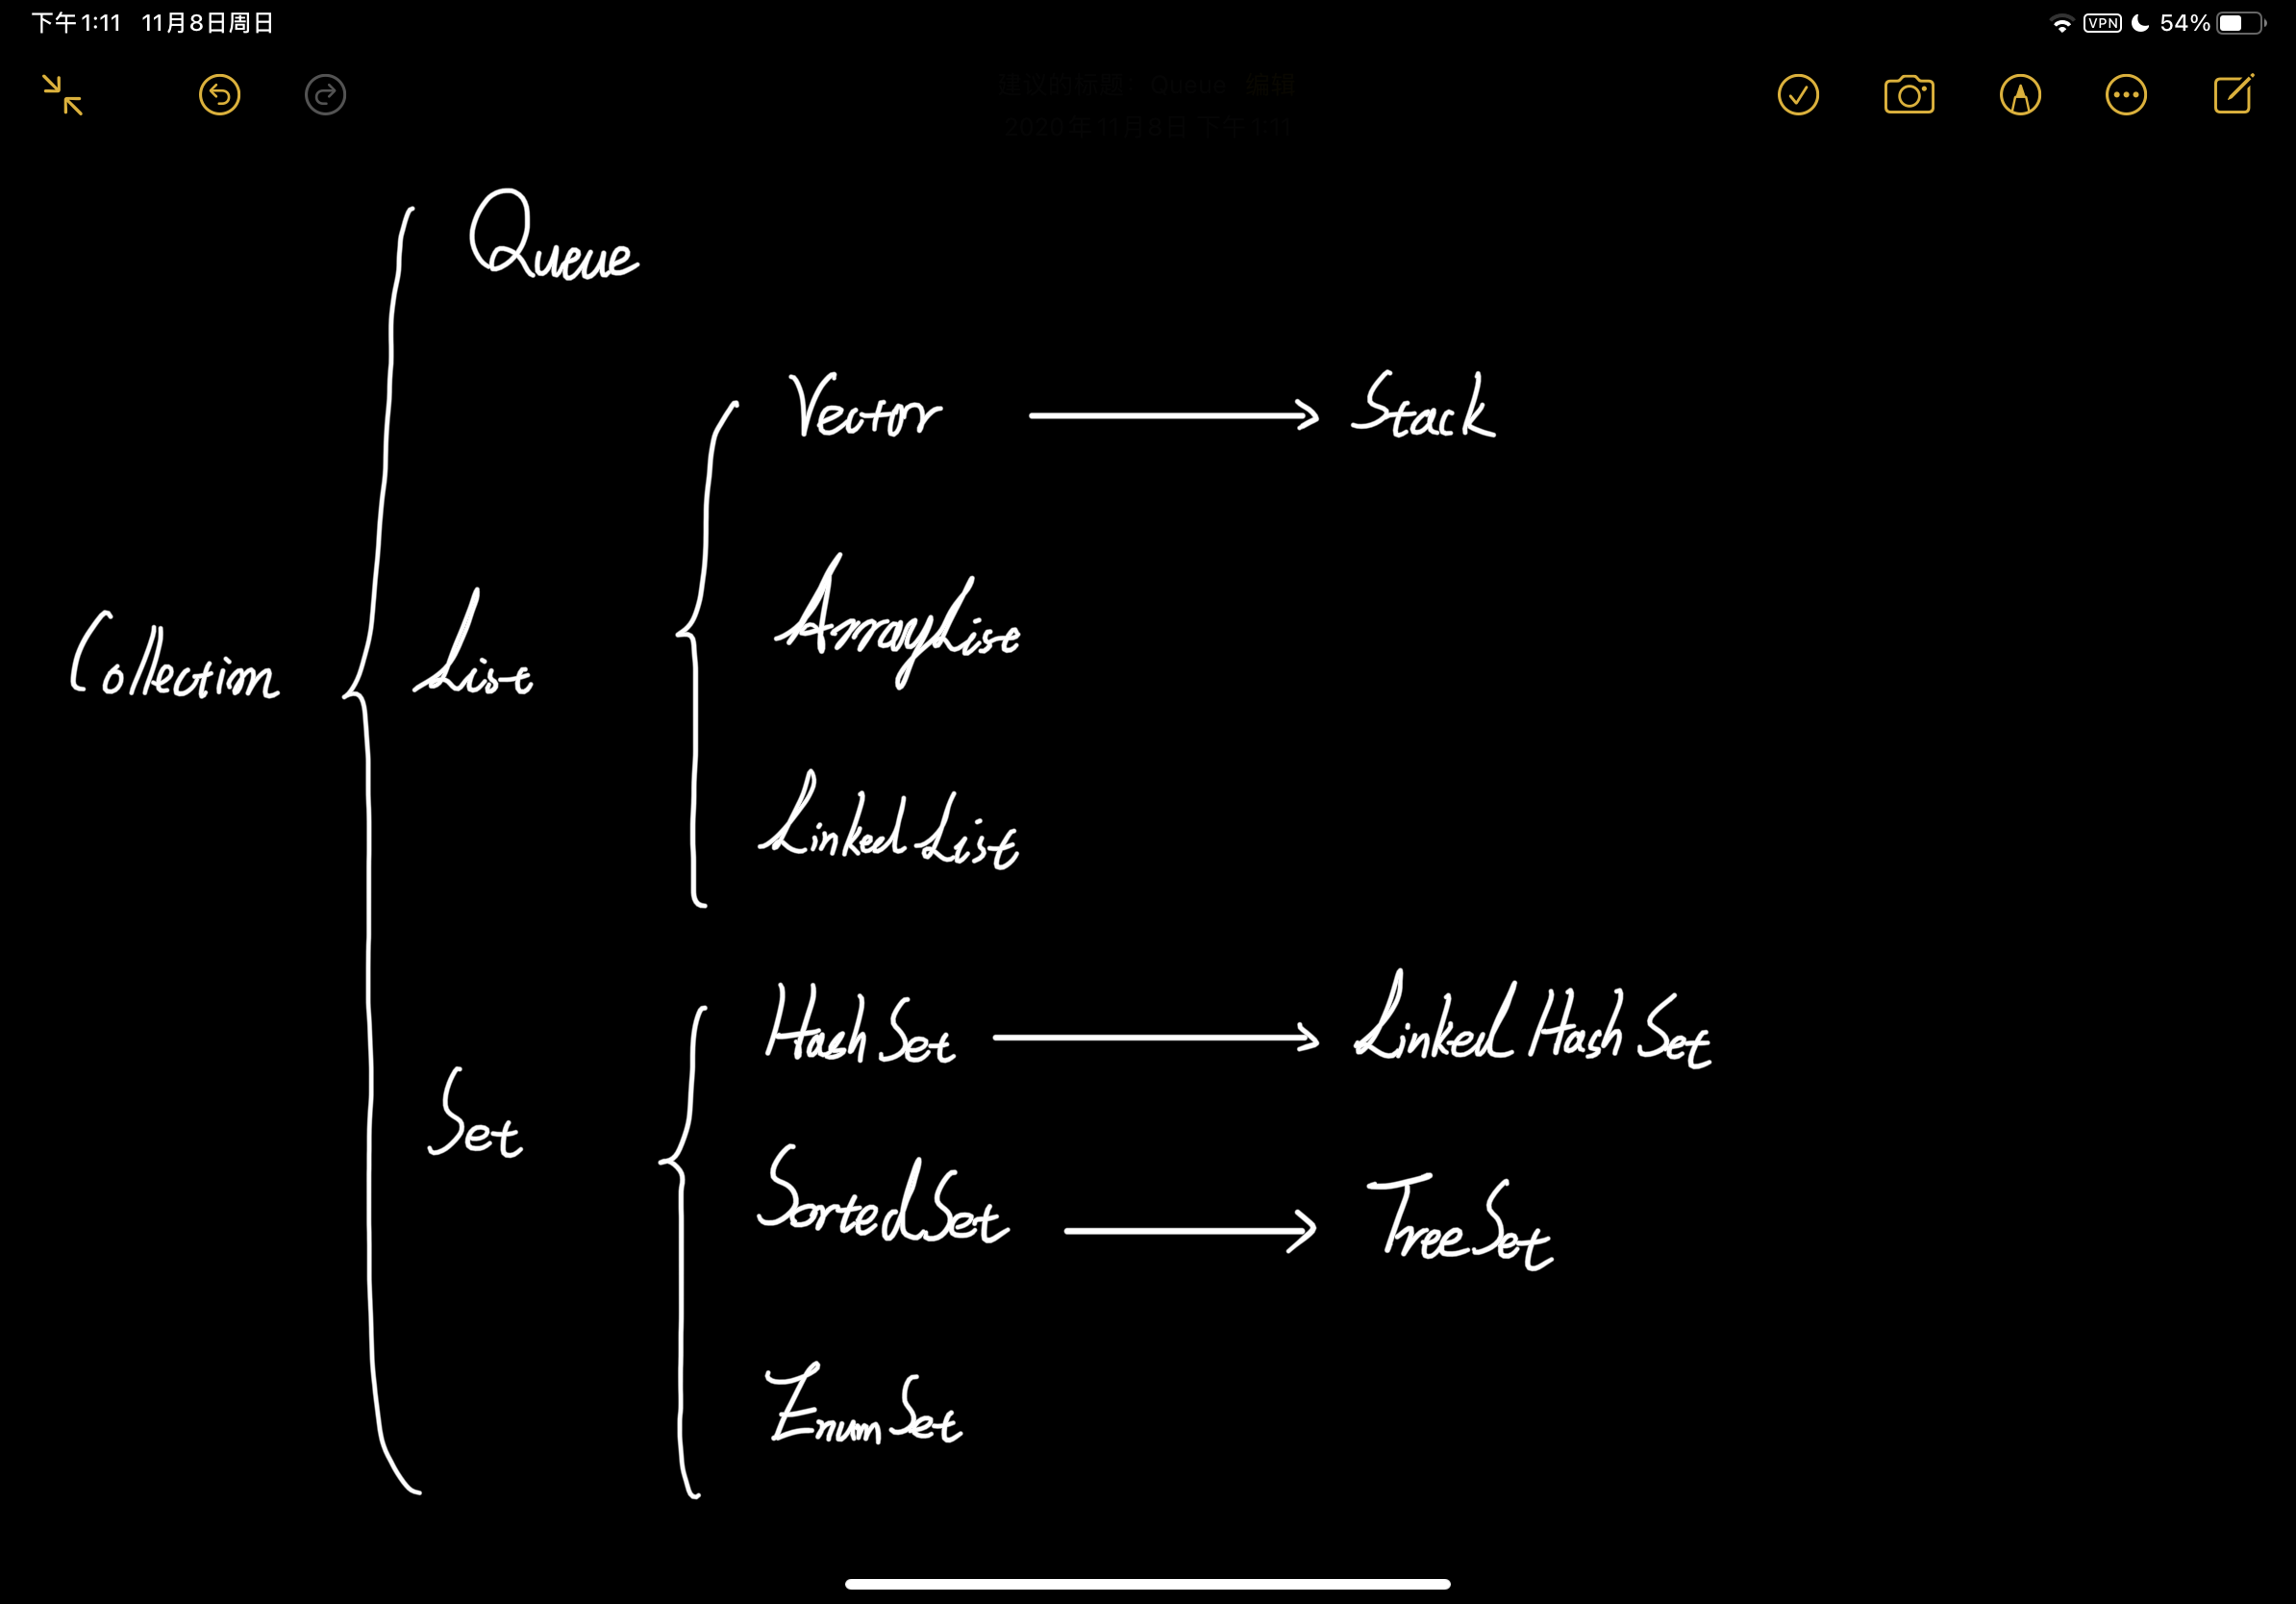 下午1:11 11月8日周日
VPN 54%
建议的标题 Queue 编辑
2020年11月8日 下午1:11
Queue
Vector → Stack
ArrayList
Collection
List
Linked List
Hash Set → Linked Hash Set
Set
SortedSet → TreeSet
Enum Set